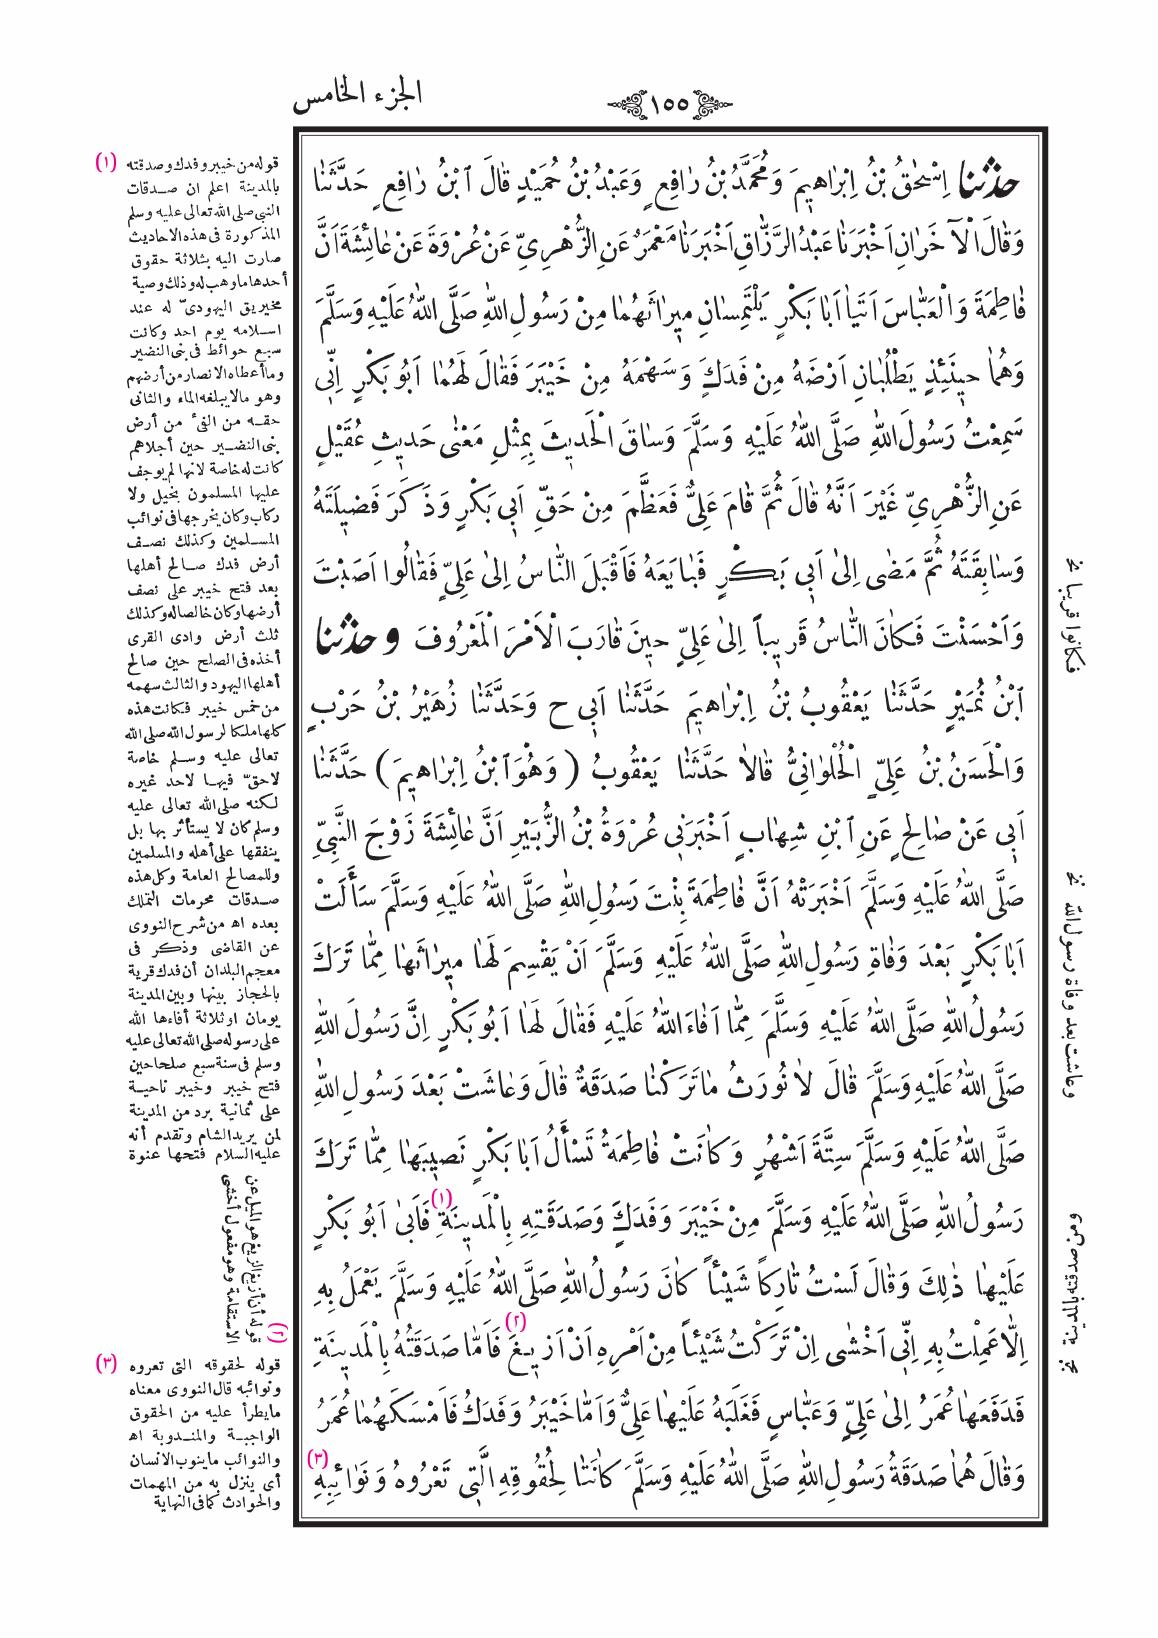 الجزء الخامس
١٥٥
حدثنا اِسْحٰقُ بْنُ اِبْرَاهِيمَ وَمُحَمَّدُ بْنُ رَافِعٍ وَعَبْدُ بْنُ حُمَيْدٍ قَالَ ابْنُ رَافِعٍ حَدَّثَنَا
وَقَالَ الْآخَرَانِ اَخْبَرَنَا عَبْدُ الرَّزَّاقِ اَخْبَرَنَا مَعْمَرٌ عَنِ الزُّهْرِيِّ عَنْ عُرْوَةَ عَنْ عَائِشَةَ اَنَّ
فَاطِمَةَ وَالْعَبَّاسَ اَتَيَا اَبَا بَكْرٍ يَلْتَمِسَانِ مِيرَاثَهُمَا مِنْ رَسُولِ اللّٰهِ صَلَّى اللّٰهُ عَلَيْهِ وَسَلَّمَ
وَهُمَا حِينَئِذٍ يَطْلُبَانِ اَرْضَهُ مِنْ فَدَكٍ وَسَهْمَهُ مِنْ خَيْبَرَ فَقَالَ لَهُمَا اَبُو بَكْرٍ اِنِّى
سَمِعْتُ رَسُولَ اللّٰهِ صَلَّى اللّٰهُ عَلَيْهِ وَسَلَّمَ وَسَاقَ الْحَدِيثَ بِمِثْلِ مَعْنٰى حَدِيثِ عُقَيْلٍ
عَنِ الزُّهْرِيِّ غَيْرَ اَنَّهُ قَالَ ثُمَّ قَامَ عَلِيٌّ فَعَظَّمَ مِنْ حَقِّ اَبِى بَكْرٍ وَذَكَرَ فَضِيلَتَهُ
وَسَابِقَتَهُ ثُمَّ مَضٰى اِلٰى اَبِى بَكْرٍ فَبَايَعَهُ فَاَقْبَلَ النَّاسُ اِلٰى عَلِيٍّ فَقَالُوا اَصَبْتَ
وَاَحْسَنْتَ فَكَانَ النَّاسُ قَرِيباً اِلٰى عَلِيٍّ حِينَ قَارَبَ الْاَمْرَ الْمَعْرُوفَ وحدثنا
ابْنُ نُمَيْرٍ حَدَّثَنَا يَعْقُوبُ بْنُ اِبْرَاهِيمَ حَدَّثَنَا اَبِى ح وَحَدَّثَنَا زُهَيْرُ بْنُ حَرْبٍ
وَالْحَسَنُ بْنُ عَلِيٍّ الْحُلْوَانِيُّ قَالَا حَدَّثَنَا يَعْقُوبُ (وَهُوَ ابْنُ اِبْرَاهِيمَ) حَدَّثَنَا
اَبِى عَنْ صَالِحٍ عَنِ ابْنِ شِهَابٍ اَخْبَرَنِى عُرْوَةُ بْنُ الزُّبَيْرِ اَنَّ عَائِشَةَ زَوْجَ النَّبِيِّ
صَلَّى اللّٰهُ عَلَيْهِ وَسَلَّمَ اَخْبَرَتْهُ اَنَّ فَاطِمَةَ بِنْتَ رَسُولِ اللّٰهِ صَلَّى اللّٰهُ عَلَيْهِ وَسَلَّمَ سَأَلَتْ
اَبَا بَكْرٍ بَعْدَ وَفَاةِ رَسُولِ اللّٰهِ صَلَّى اللّٰهُ عَلَيْهِ وَسَلَّمَ اَنْ يَقْسِمَ لَهَا مِيرَاثَهَا مِمَّا تَرَكَ
رَسُولُ اللّٰهِ صَلَّى اللّٰهُ عَلَيْهِ وَسَلَّمَ مِمَّا اَفَاءَ اللّٰهُ عَلَيْهِ فَقَالَ لَهَا اَبُو بَكْرٍ اِنَّ رَسُولَ اللّٰهِ
صَلَّى اللّٰهُ عَلَيْهِ وَسَلَّمَ قَالَ لَا نُورَثُ مَا تَرَكْنَا صَدَقَةٌ قَالَ وَعَاشَتْ بَعْدَ رَسُولِ اللّٰهِ
صَلَّى اللّٰهُ عَلَيْهِ وَسَلَّمَ سِتَّةَ اَشْهُرٍ وَكَانَتْ فَاطِمَةُ تَسْأَلُ اَبَا بَكْرٍ نَصِيبَهَا مِمَّا تَرَكَ
رَسُولُ اللّٰهِ صَلَّى اللّٰهُ عَلَيْهِ وَسَلَّمَ مِنْ خَيْبَرَ وَفَدَكٍ وَصَدَقَتِهِ بِالْمَدِينَةِ (١) فَاَبٰى اَبُو بَكْرٍ
عَلَيْهَا ذٰلِكَ وَقَالَ لَسْتُ تَارِكاً شَيْئاً كَانَ رَسُولُ اللّٰهِ صَلَّى اللّٰهُ عَلَيْهِ وَسَلَّمَ يَعْمَلُ بِهِ
اِلَّا عَمِلْتُ بِهِ اِنِّى اَخْشٰى اِنْ تَرَكْتُ شَيْئاً مِنْ اَمْرِهِ اَنْ اَزِيغَ (٢) فَاَمَّا صَدَقَتُهُ بِالْمَدِينَةِ
فَدَفَعَهَا عُمَرُ اِلٰى عَلِيٍّ وَعَبَّاسٍ فَغَلَبَهُ عَلَيْهَا عَلِيٌّ وَاَمَّا خَيْبَرُ وَفَدَكُ فَاَمْسَكَهُمَا عُمَرُ
وَقَالَ هُمَا صَدَقَةُ رَسُولِ اللّٰهِ صَلَّى اللّٰهُ عَلَيْهِ وَسَلَّمَ كَانَتَا لِحُقُوقِهِ الَّتِى تَعْرُوهُ وَنَوَائِبِهِ (٣)
فكانوا قريبا نخ
وعاشت بعد وفاة رسول الله نخ
ومن صدقته بالمدينة نخ
(١) قوله من خيبر وفدك وصدقته
بالمدينة اعلم ان صدقات
النبي صلى الله تعالى عليه وسلم
المذكورة فى هذه الاحاديث
صارت اليه بثلاثة حقوق
أحدها ما وهب له وذلك وصية
مخيريق اليهودىّ له عند
اسلامه يوم احد وكانت
سبع حوائط فى بنى النضير
وما أعطاه الانصار من أرضهم
وهو مالا يبلغه الماء والثانى
حقه من الفىء من أرض
بنى النضير حين أجلاهم
كانت له خاصة لانها لم يوجف
عليها المسلمون بخيل ولا
ركاب وكان يخرجها فى نوائب
المسلمين وكذلك نصف
أرض فدك صالح أهلها
بعد فتح خيبر على نصف
أرضها وكان خالصا له وكذلك
ثلث أرض وادى القرى
أخذه فى الصلح حين صالح
أهلها اليهود والثالث سهمه
من خمس خيبر فكانت هذه
كلها ملكا لرسول الله صلى الله
تعالى عليه وسلم خاصة
لاحقّ فيها لاحد غيره
لكنه صلى الله تعالى عليه
وسلم كان لا يستأثر بها بل
ينفقها على أهله والمسلمين
وللمصالح العامة وكل هذه
صدقات محرمات التملك
بعده اه من شرح النووى
عن القاضى وذكر فى
معجم البلدان أن فدك قرية
بالحجاز بينها وبين المدينة
يومان او ثلاثة أفاءها الله
على رسوله صلى الله تعالى عليه
وسلم فى سنة سبع صلحا حين
فتح خيبر وخيبر ناحية
على ثمانية برد من المدينة
لمن يريد الشام وتقدم أنه
عليه السلام فتحها عنوة
(٢) قوله أن أزيغ الزيغ هو الميل عن
الاستقامة وهو مفعول أخشى
(٣) قوله لحقوقه التى تعروه
ونوائبه قال النووى معناه
ما يطرأ عليه من الحقوق
الواجبة والمندوبة اه
والنوائب ما ينوب الانسان
أى ينزل به من المهمات
والحوادث كما فى النهاية